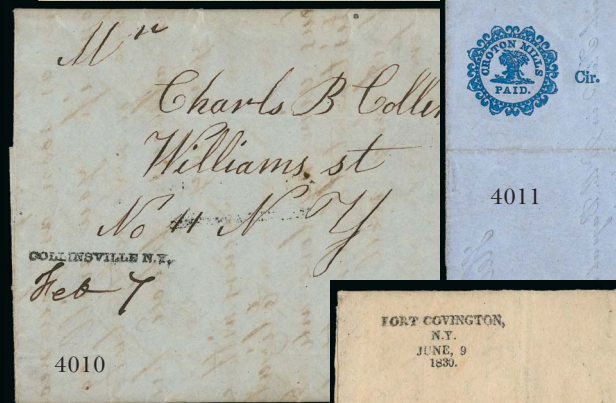 Mr
Charls B Collin
Williams. st
No 11 N Y
COLLINSVILLE N.Y.
Feb 7
4010
CROTON MILLS
PAID.
Cir.
4011
FORT COVINGTON,
N.Y.
JUNE, 9
1830.